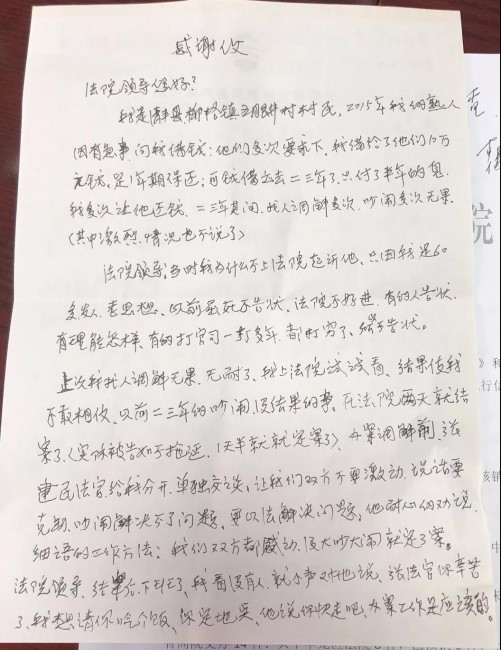 感谢信
法院领导您好？
我是清丰县柳格镇 村村民，2015年我的熟人
因有急事，向我借钱：他们多次要求下，我借给了他们10万
元钱，定1年期保还；可钱借出去二三年了，只付了半年的息
我多次让他还钱，二三年其间，找人调解多次，吵闹多次无果
（其中激烈情况也不说了）
法院领导，当时我为什么不上法院起诉他，只因我是60
多岁人，老思想，以前屈死不告状，法院不好进，有的人告状
有理能怎样，有的打官司一打多年，都打穷了，给不告状。
上次我找人调解无果，无耐了，我上法院试试看，结果使我
不敢相信，以前二三年的吵闹没结果的事，在法院两天就结
案了，（实际被告如不拖延，1天半就就定案了），办案调解前，张
建民法官，给我分开，单独交谈，让我们双方不要激动，说话要
克制，吵闹解决不了问题，要以法解决问题，他耐心的劝说，
细语的工作方法：我们双方都感动，没大吵大闹就定了案。
法院领导，结案 ，下班了，我看没有人，就小声对他说，张法官你辛苦
了，我想请你吃个饭，你定地点，他说你快走吧，办案工作是应该的。
院